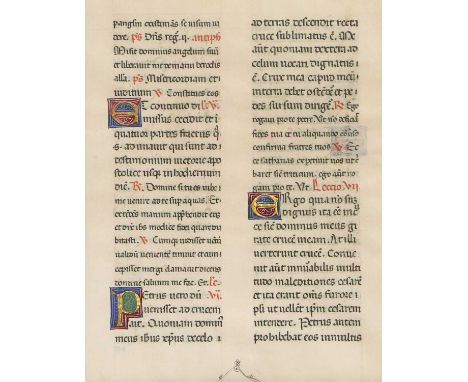 pangsim existimās se uisum ui
dere. ps Dn̄s reg̃. ii. antiph̃
Misit dominus angelum suū
et liberauit me de manu herodis
alla. ps Misericordiam et
iudicium V Constitues eos
Et continuo di
missus cecidit et i
quatuor partes fractus
ad inanit qui sunt ad
testimonium uictorie apo
die. R Domine si tu es iube
me uenire ad te sup aquas. Et
extēdēs manum apphendit eum
et dixit ihs modice fidei quare du
bitasti. V Cumq uidisset uentū
ualidū uenientē timuit et cum
cepisset mergi clamauit dicens
domine saluum me fac. Et
Petrus uero dū
uenisset ad crucem
ait. Quoniam domin
meus ihus xp̄us de celo i
ad terras descendit recta
cruce sublimatus ē.
aūt quoniam de terra ad
celum uocari dignatus
ē Crux mea caput meū i
terra debet ostēdē et pe
des sursum dirigē. R Ego
rogaui pro te petre Vt nō deficiat
fides tua et tu aliquando conuersus
confirma fratres tuos V Ec
ce sathanas expetiuit uos ut cri
baret sic triticum. ego aūt ro
gaui pro te. Vt Lectio.VII
Ergo quia nō suz
dignus ita eē in cru
ce sic dominus meus gi
rate crucē meam. At illi
uerterunt crucē. Conue
nit aūt innūabilis multi
tudo maledictiones cesari
et ita erant oīns furore i
pli ut uellēt ipm cesarem
incendere. Petrus autem
prohibebat eos in multis